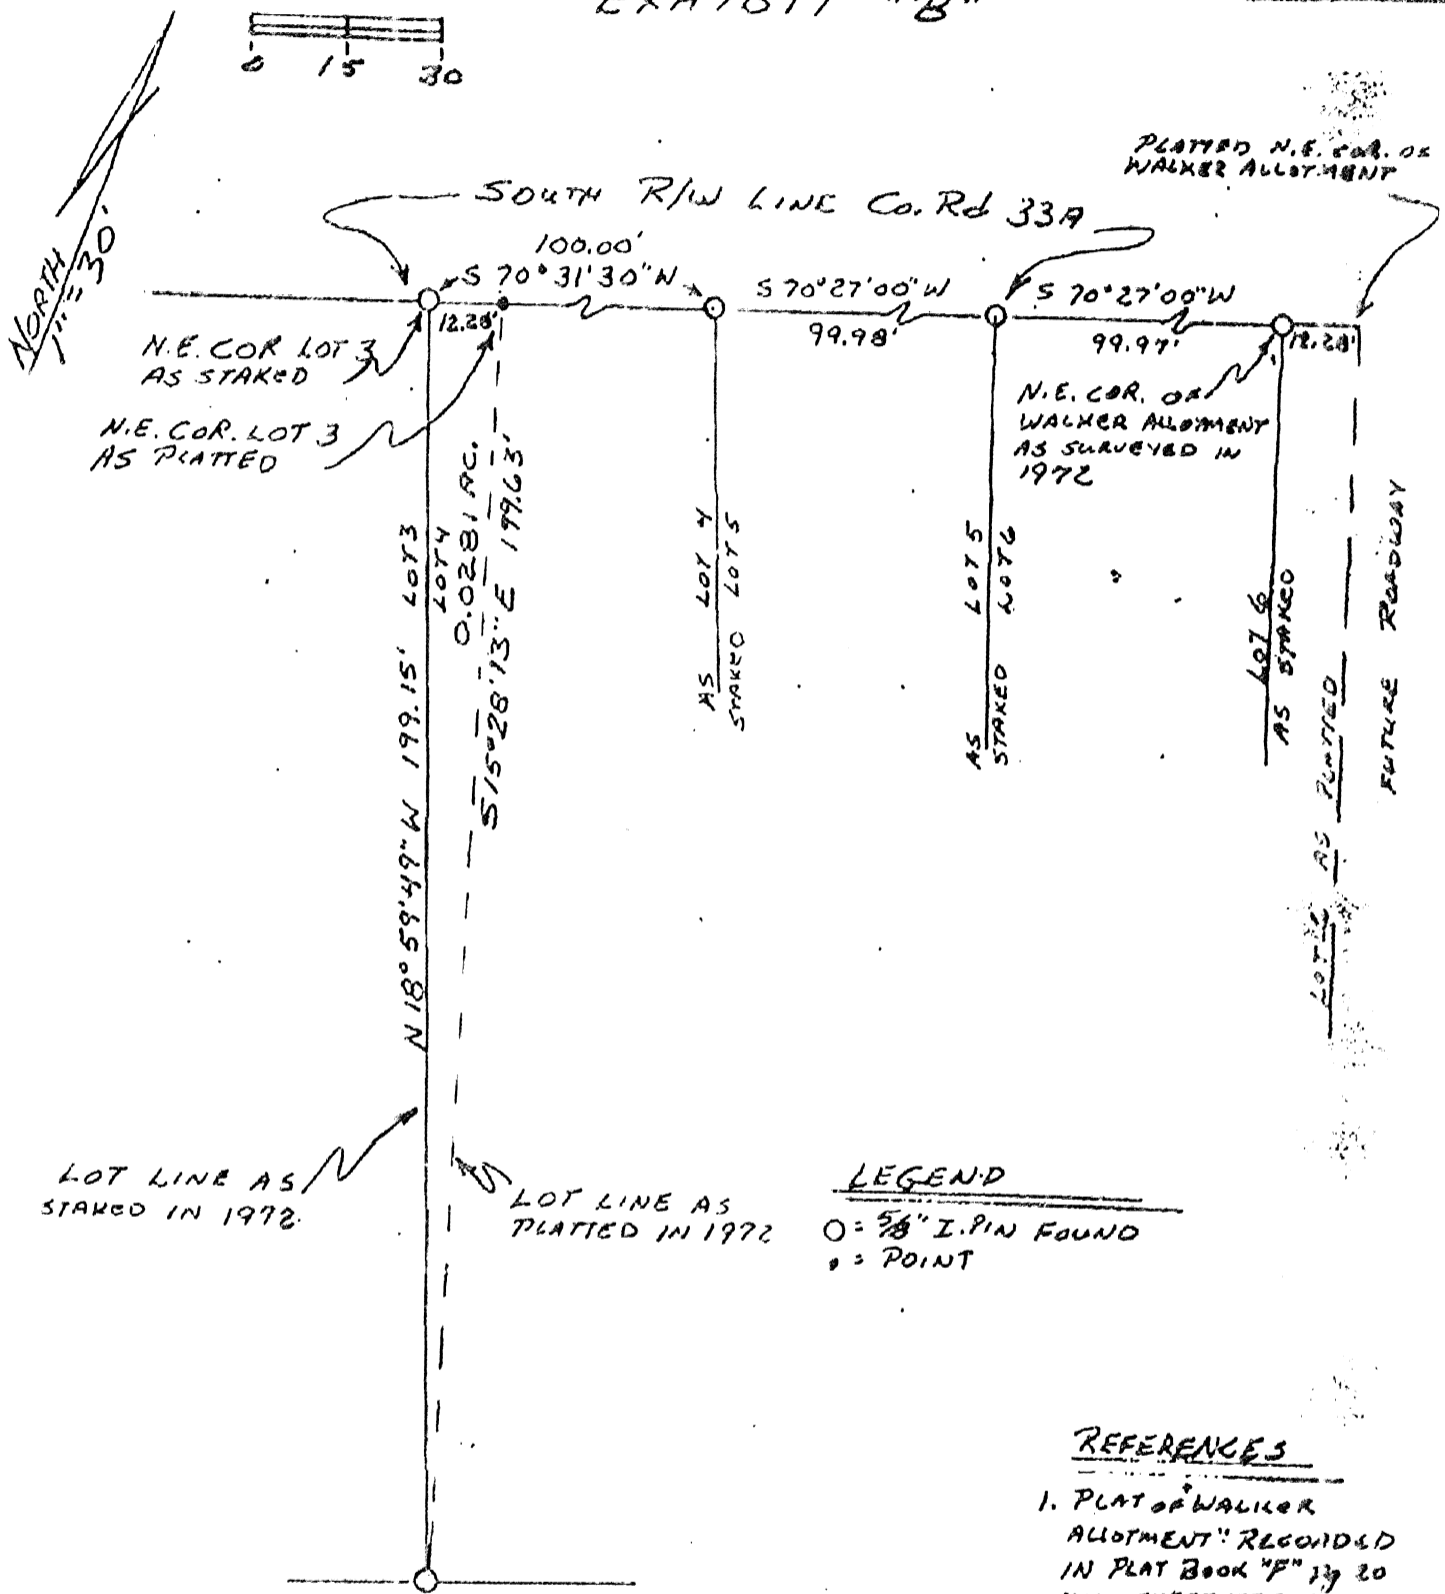 EXHIBIT "B"
0 15 30
NORTH
1"=30'
PLATTED N.E. COR. OF
WALKER ALLOTMENT
SOUTH R/W LINE Co. Rd 33A
100.00'
S 70°31'30" W
S 70°27'00" W
S 70°27'00" W
12.28'
99.98'
99.97'
12.28'
N.E. COR LOT 3
AS STAKED
N.E. COR. LOT 3
AS PLATTED
N.E. COR. OF
WALKER ALLOTMENT
AS SURVEYED IN
1972
N 18° 59'49" W 199.15'
LOT 3
LOT 4
0.0281 AC.
S 15°28'13" E 199.63'
AS LOT 4
STAKED LOT 5
AS LOT 5
STAKED LOT 6
LOT 6
AS STAKED
LOT 6 AS PLATTED
FUTURE ROADWAY
LOT LINE AS
STAKED IN 1972
LOT LINE AS
PLATTED IN 1972
LEGEND
O = 5/8" I. PIN FOUND
• = POINT
REFERENCES
1. PLAT OF "WALKER
ALLOTMENT" RECORDED
IN PLAT BOOK "F" Pg 20